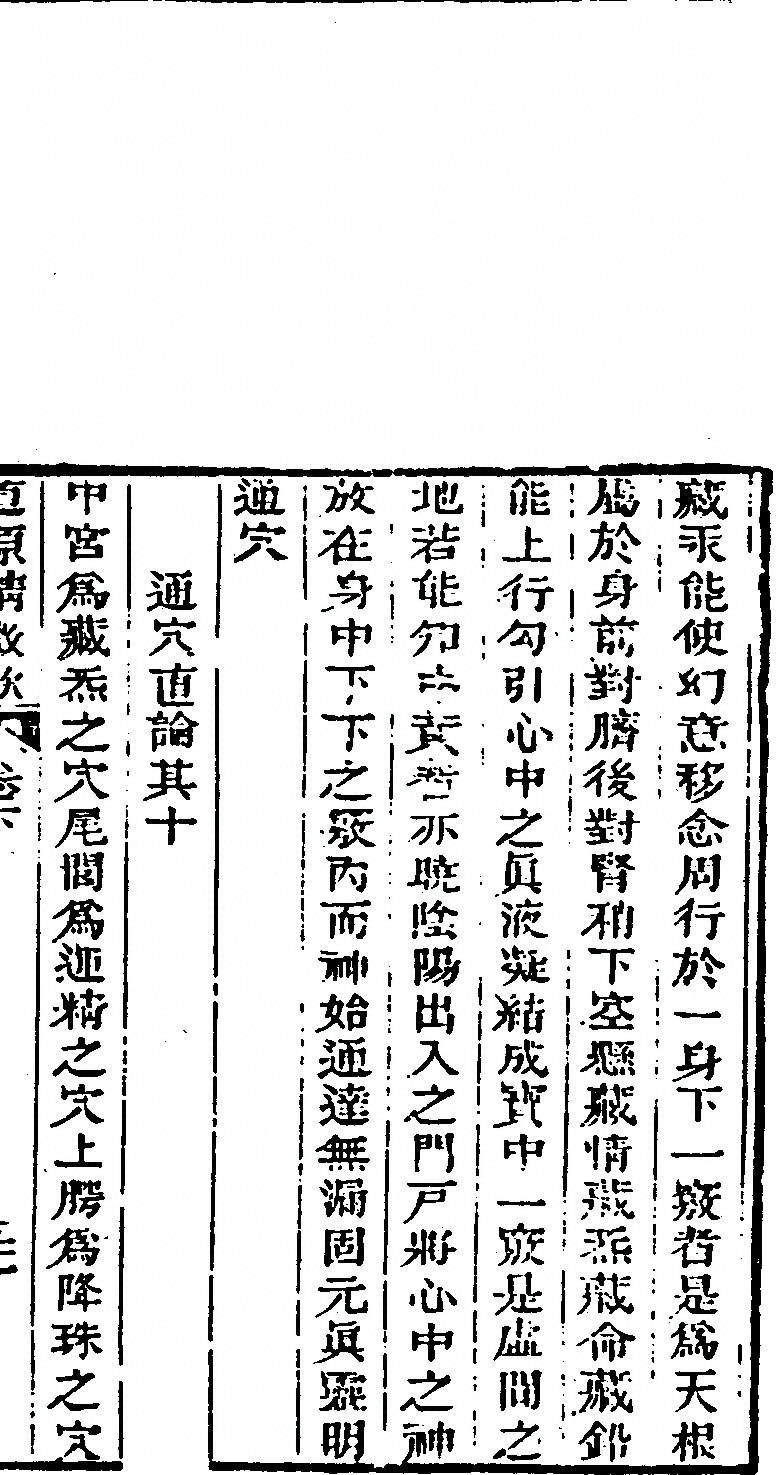 藏汞能使幻意移念周行於一身下一竅者是爲天根
屬於身前對臍後對腎稍下空懸藏情藏炁藏命藏鉛
能上行勾引心中之眞液凝結成寶中一竅是虛間之
地若能知 者亦曉陰陽出入之門戸將心中之神
放在身中下下之竅內而神始通達無漏固元眞靈明
通穴
通穴直論其十
中宮爲藏炁之穴尾閭爲通精之穴上腭爲降珠之穴
道原精微歌 卷下